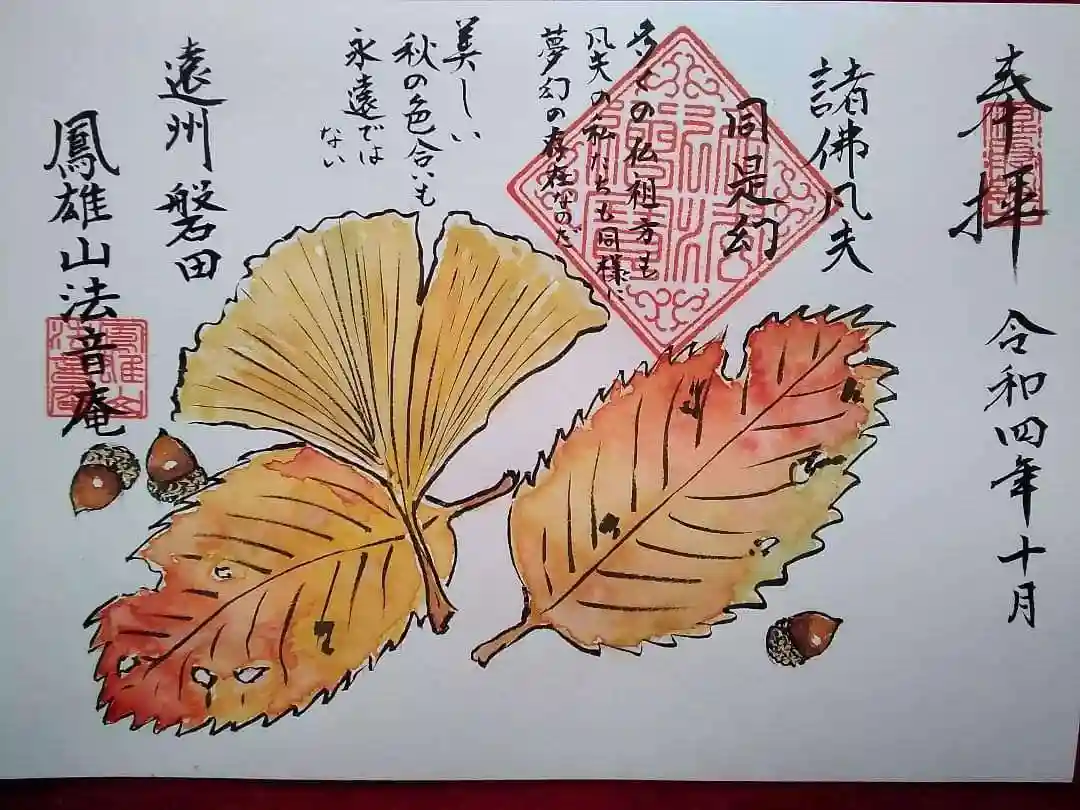 奉拝
令和四年十月
諸佛凡夫
同是幻
多くの仏祖方も
凡夫の私たちも同様に
夢幻の存在なのだ
美しい
秋の色合いも
永遠では
ない
遠州磐田
鳳雄山法音庵